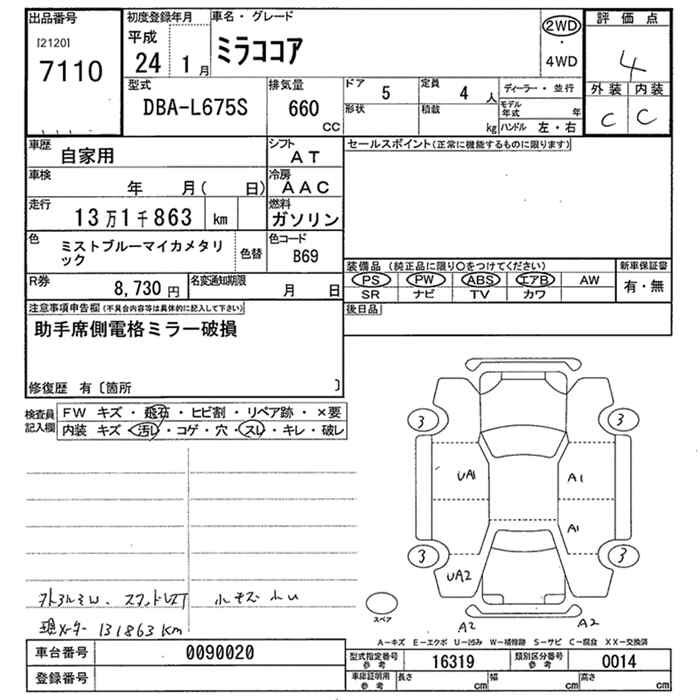 出品番号
[2120]
7110
初度登録年月
平成
24 1 月
車名・グレード
ミラココア
2WD
・
4WD
評価点
4
外装 内装
C C
型式
DBA-L675S
排気量
660
CC
ドア 5
定員 4 人
形状
積載 kg
ディーラー・並行
モデル年式 年
ハンドル 左・右
車歴
自家用
シフト
AT
車検
年 月( 日)
冷房
AAC
走行
13万1千863 km
燃料
ガソリン
色
ミストブルーマイカメタリック
色替
色コード
B69
R券
8,730 円
名変通知期限
月 日
セールスポイント(正常に機能するものに限ります)
装備品 (純正品に限り○をつけてください)
PS PW ABS エアB AW
SR ナビ TV カワ
新車保証書
有・無
後日品
注意事項申告欄 (不具合内容等は具体的に記入して下さい)
助手席側電格ミラー破損
修復歴 有〔箇所 〕
検査員記入欄
FW キズ・飛石・ヒビ割・リペア跡・×要
内装 キズ・汚レ・コゲ・穴・スレ・キレ・破レ
3 3
UA1 A1
A1
3 3
UA2
A2 A2
スペア
現メーター 131863Km
A-キズ E-エクボ U-凹み W-補修跡 S-サビ C-腐食 XX-交換済
車台番号 0090020
登録番号
型式指定番号 参考 16319
類別区分番号 参考 0014
車庫証明用 参考
長さ cm 幅 cm 高さ cm